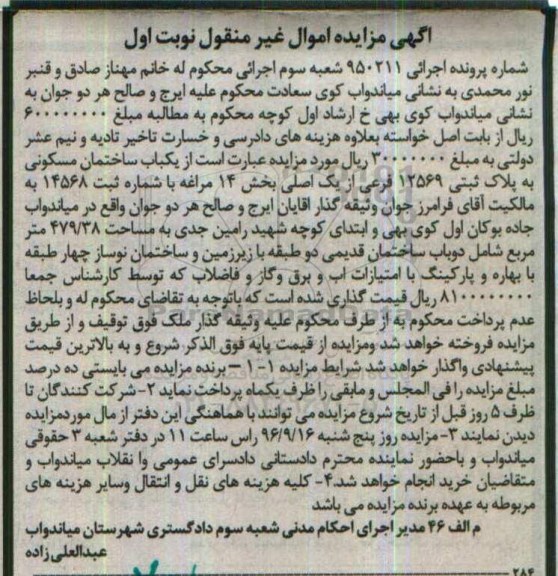 اگهی مزایده اموال غیر منقول نوبت اول
شماره پرونده اجرائی ۹۵۰۲۱۱ شعبه سوم اجرائی محکوم له خانم مهناز صادق و قنبر
نور محمدی به نشانی میاندواب کوی سعادت محکوم علیه ایرج و صالح هر دو جوان به
نشانی میاندواب کوی بهی خ ارشاد اول کوچه محکوم به مطالبه مبلغ ۶۰۰۰۰۰۰۰۰
ریال از بابت اصل خواسته بعلاوه هزینه های دادرسی و خسارت تاخیر تادیه و نیم عشر
دولتی به مبلغ ۳۰۰۰۰۰۰۰ ریال مورد مزایده عبارت است از یکباب ساختمان مسکونی
به پلاک ثبتی ۱۲۵۶۹ فرعی از یک اصلی بخش ۱۴ مراغه با شماره ثبت ۱۴۵۶۸ به
مالکیت آقای فرامرز جوان وثیقه گذار اقایان ایرج و صالح هر دو جوان واقع در میاندواب
جاده بوکان اول کوی بهی و ابتدای کوچه شهید رامین جدی به مساحت ۴۷۹/۳۸ متر
مربع شامل دوباب ساختمان قدیمی دو طبقه با زیرزمین و ساختمان نوساز چهار طبقه
با بهاره و پارکینگ با امتیازات اب و برق وگاز و فاضلاب که توسط کارشناس جمعا
۸۱۰۰۰۰۰۰۰۰ ریال قیمت گذاری شده است که باتوجه به تقاضای محکوم له و بلحاظ
عدم پرداخت محکوم به از طرف محکوم علیه وثیقه گذار ملک فوق توقیف و از طریق
مزایده فروخته خواهد شد ومزایده از قیمت پایه فوق الذکر شروع و به بالاترین قیمت
پیشنهادی واگذار خواهد شد شرایط مزایده ۱-۱ – برنده مزایده می بایستی ده درصد
مبلغ مزایده را فی المجلس و مابقی را ظرف یکماه پرداخت نماید ۲-شرکت کنندگان تا
ظرف ۵ روز قبل از تاریخ شروع مزایده می توانند با هماهنگی این دفتر از مال موردمزایده
دیدن نمایند ۳-مزایده روز پنج شنبه ۹۶/۹/۱۶ راس ساعت ۱۱ در دفتر شعبه ۳ حقوقی
میاندواب و باحضور نماینده محترم دادستانی دادسرای عمومی وا نقلاب میاندواب و
متقاضیان خرید انجام خواهد شد.۴- کلیه هزینه های نقل و انتقال وسایر هزینه های
مربوطه به عهده برنده مزایده می باشد
م الف ۴۶ مدیر اجرای احکام مدنی شعبه سوم دادگستری شهرستان میاندواب
عبدالعلی زاده
۲۸۴